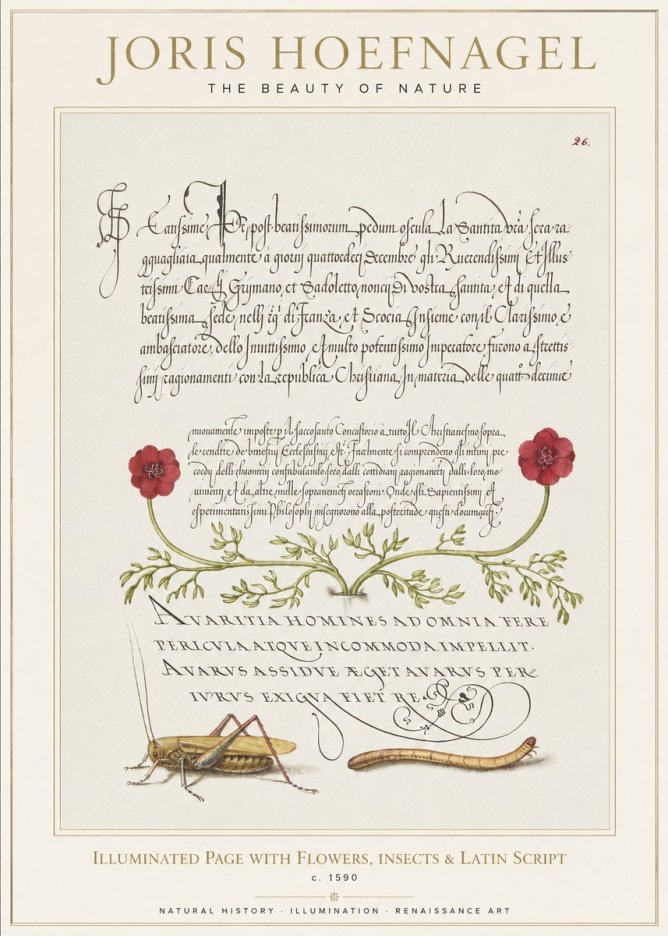 JORIS HOEFNAGEL
THE BEAUTY OF NATURE
26.
post beatissimorum pedum oscula La Santita vra sera ra
gguagliata qualmente a giorni quattordeci Decembre gli Et Illus
Grymano, et Sadoletto, noncij Di vostra santita, et di quella
beatissima Sede, nelli di Franza, et Scocia Insieme con il Clarissimo, e
ambasciatore dello Invittissimo, et multo potentissimo Imperatore furono a strettis
simi ragionamenti con La republica Christiana, In materia delle decime
nuovamente imposte Concistorio a tutto Il Christianesmo sopra
le rendite de benefitij Ecclesiastici, Finalmente si comprendeno
delli cottidiani ragionameti Dalli loro, mo
et da altre mille Onde gli Sapientissimi et
Philosophi insegnorono alla posteritade questi documenti
AVARITIA HOMINES AD OMNIA FERE
PERICVLA ATQVE INCOMMODA IMPELLIT.
AVARVS ASSIDVE ÆGET AVARVS PER
IVRVS EXIGVA FIET RE
ILLUMINATED PAGE WITH FLOWERS, INSECTS & LATIN SCRIPT
c. 1590
NATURAL HISTORY · ILLUMINATION · RENAISSANCE ART